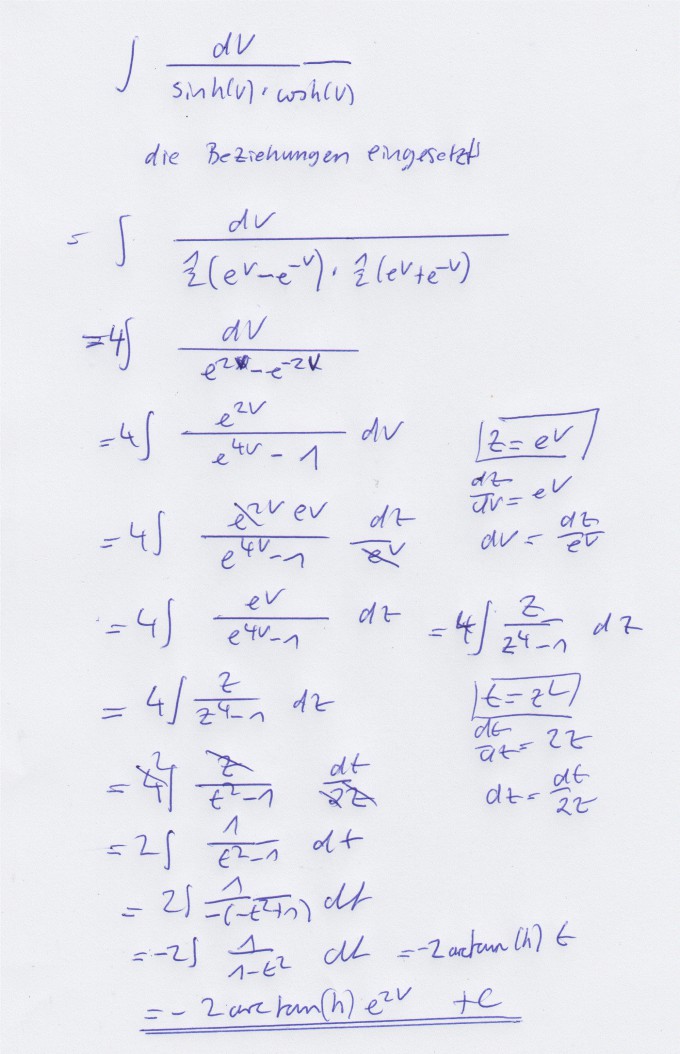 ∫ dv / (sinh(v) · cosh(v))
die Beziehungen eingesetzt
= ∫ dv / (½(e^v - e^-v) · ½(e^v + e^-v))
= 4∫ dv / (e^2v - e^-2v)
= 4∫ e^2v / (e^4v - 1) dv
z = e^v
dz/dv = e^v
dv = dz/e^v
= 4∫ e^2v e^v / (e^4v - 1) dz/e^v
= 4∫ e^v / (e^4v - 1) dz = 4∫ z / (z^4 - 1) dz
= 4∫ z / (z^4 - 1) dz
t = z^2
dt/dz = 2z
dz = dt/2z
= 4 2 ∫ z / (t^2 - 1) dt/2z
= 2∫ 1 / (t^2 - 1) dt
= 2∫ 1 / -(-t^2 + 1) dt
= -2∫ 1 / (1 - t^2) dt = -2 arctan(h) t
= -2 arctan(h) e^2v + C